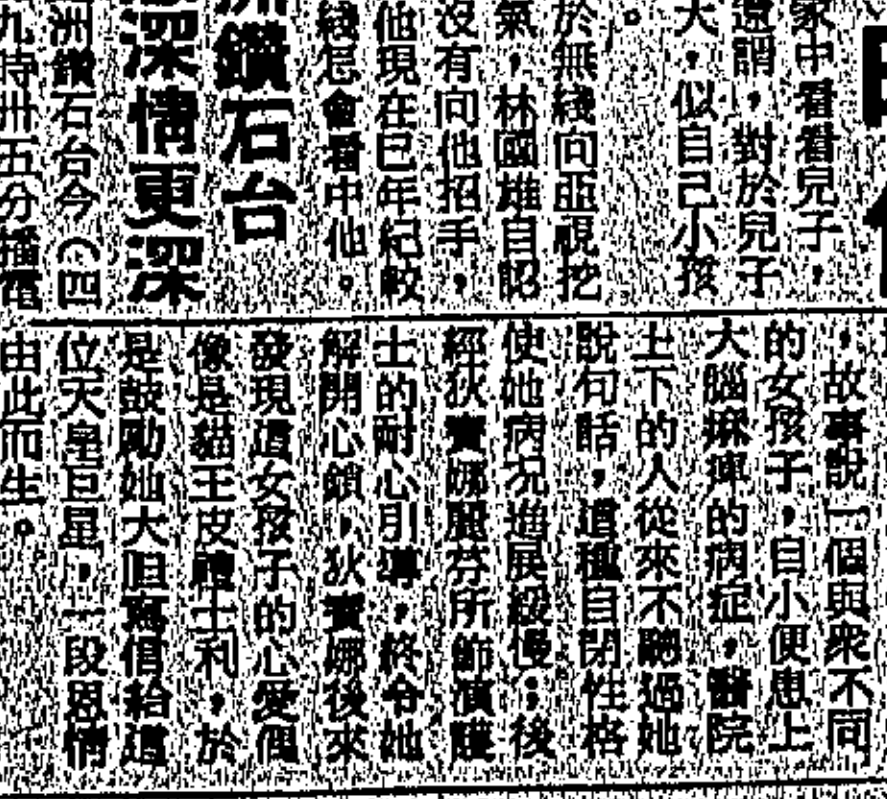 家中看看兒子，
還謂，對於兒子
大，似自己小孩
。
於無綫向亞視挖
氣，林國雄自認
沒有向他招手，
他現在已年紀較
綫怎會看中他。
洲鑽石台
深情更深
洲鑽石台今（四
九時卅五分播電
，故事說一個與衆不同
的女孩子，自小便患上
大腦麻痺的病症，醫院
上下的人從來不聽過她
說句話，這種自閉性格
使她病况進展緩慢；後
經狄寶娜麗芬所飾演護
士的耐心引導，終令她
解開心鎖，狄寶娜後來
發現這女孩子的心愛偶
像是貓王皮禮士利，於
是鼓勵她大胆寫信給這
位天皇巨星，一段恩情
由此而生。